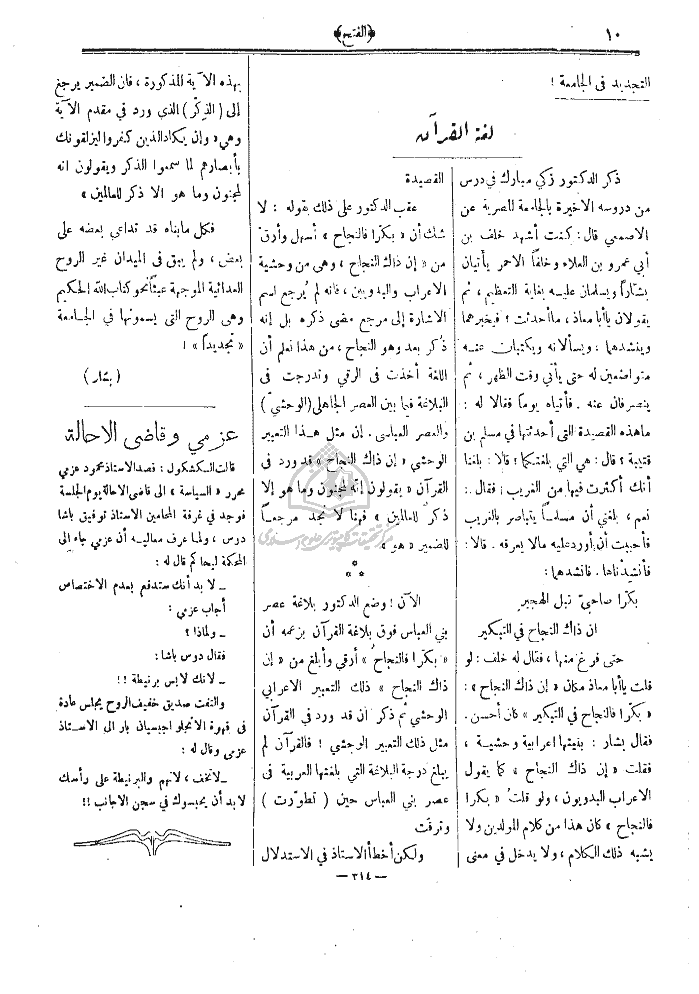 ١٠
﴿الفتح﴾
التجديد فى الجامعة !
لغة القرآن
ذكر الدكتور زكي مبارك في درس
من دروسه الاخيرة بالجامعة المصرية عن
الاصمعي قال : كنت أشهد خلف بن
أبي عمرو بن العلاء وخلفاً الاحمر يأتيان
بشاراً ويسلمان عليه بغاية التعظيم ، ثم
يقولان ياأبا معاذ ، ماأحدثت ؟ فيخبرهما
وينشدهما : ويسألانه ويكتبان عنه
متواضعين له حتى يأتي وقت الظهر ، ثم
ينصرفان عنه . فأتياه يوماً فقالا له :
ماهذه القصيدة التى أحدثتها في مسلم بن
قتيبة ؟ قال : هي التي بلغتكما ؟ قالا : بلغنا
أنك أكثرت فيها من الغريب : فقال :
نعم ، بلغني أن مسلماً يتباصر بالغريب
فأحببت أن أورد عليه مالا يعرفه . قالا :
فأنشدناها . فانشدهما :
بكرا صاحبيّ قبل الهجير
ان ذاك النجاح في التبكير
حتى فرغ منها ، فقال له خلف : لو
قلت ياأبا معاذ مكان « إن ذاك النجاح » :
« بكرا فالنجاح في التبكير » كان أحسن .
فقال بشار : بنيتها اعرابية وحشية ،
فقلت « إن ذاك النجاح » كما يقول
الاعراب البدويون ، ولو قلت « بكرا
فالنجاح » كان هذا من كلام المولدين ولا
يشبه ذلك الكلام ، ولا يدخل في معنى
القصيدة
عقب الدكتور على ذلك بقوله : لا
شك أن « بكرا فالنجاح » أسهل وأرق
من « إن ذاك النجاح » ، وهي من وحشية
الاعراب والبدويين ، فانه لم يُرجع اسم
الاشارة إلى مرجع مضى ذكره بل إنه
ذُكر بعد وهو النجاح ، من هذا نعلم أن
اللغة أخذت فى الرقي وتدرجت فى
البلاغة فيما بين العصر الجاهلي (الوحشي)
والعصر العباسي . إن مثل هذا التعبير
الوحشي « إن ذاك النجاح » قد ورد فى
القرآن « يقولون إنه لمجنون وما هو إلا
ذكر للعالمين » فهنا لا نجد مرجعاً
للضمير « هو »
* * *
الآن ! وضع الدكتور بلاغة عصر
بني العباس فوق بلاغة القرآن بزعمه أن
« بكرا فالنجاح » أرقي وأبلغ من « إن
ذاك النجاح » ذلك التعبير الاعرابي
الوحشي ثم ذكر ان قد ورد فى القرآن
مثل ذلك التعبير الوحشي ! فالقرآن لم
يبلغ درجة البلاغة التي بلغتها العربية فى
عصر بني العباس حين ( تطوّرت )
وترقت
ولكن أخطأ الاستاذ في الاستدلال
بهذه الآية المذكورة ، فان الضمير يرجع
إلى ( الذكر ) الذي ورد فى مقدم الآية
وهي « وإن يكاد الذين كفروا ليزلقونك
بأبصارهم لما سمعوا الذكر ويقولون انه
لمجنون وما هو الا ذكر للعالمين »
فكل مابناه قد تداعي بعضه على
بعض ، ولم يبق فى الميدان غير الروح
العدائية الموجهة عبثاً نحو كتاب الله الحكيم
وهي الروح التى يسمونها في الجامعة
« تجديداً » !
( بشار )
عزمي وقاضى الاحالة
قالت الكشكول : قصد الاستاذ محمود عزمي
محرر « السياسة » الى قاضى الاحالة يوم الجلسة
فوجد في غرفة المحامين الاستاذ توفيق باشا
دوس ، ولما عرف معاليه أن عزمي جاء الى
المحكمة ليحاكم قال له :
ـ لا بد أنك ستدفع بعدم الاختصاص
أجاب عزمي :
ـ ولماذا ؟
فقال دوس باشا :
ـ لانك لابس برنيطة !!
والتفت صديق خفيف الروح يجلس عادة
فى قهوة الانجلو اجبسيان بار الى الاستاذ
عزمي وقال له :
ـ لاتخف ، لانهم والبرنيطة على رأسك
لا بد أن يحبسوك في سجن الاجانب !!
— ٣١٤ —